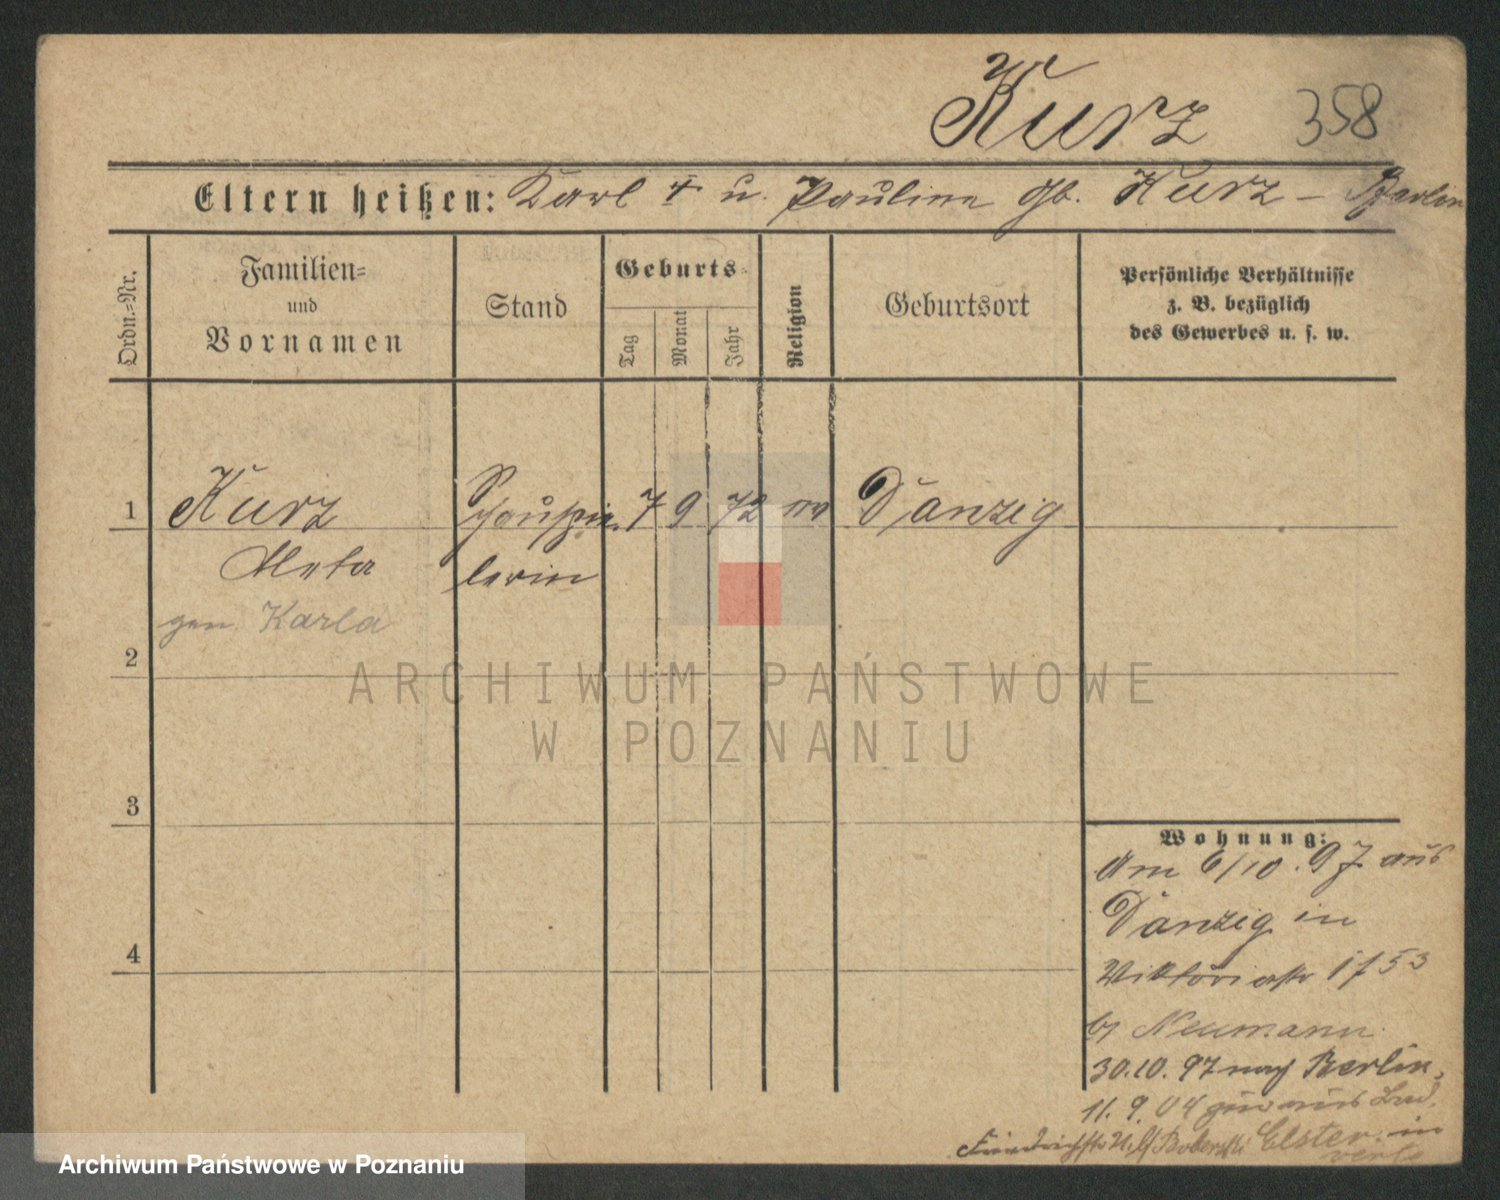 Kurz 358
Eltern heißen: Karl † u. Pauline gb. Kurz - Berlin
Ordn.=Nr.
Familien=
und
Vornamen
Stand
Geburts=
Tag
Monat
Jahr
Religion
Geburtsort
Persönliche Verhältnisse
z. B. bezüglich
des Gewerbes u. s. w.
1 Kurz Schauspie- 7 9 72 ev Danzig
Meta lerin
gen. Karla
2
3
4
Wohnung:
Am 6/10. 97 aus
Danzig in
Viktoriastr 1753
b/ Neumann
30.10.97 nach Berlin,
11.9.04 aus
Elster in
ARCHIWUM PAŃSTWOWE
W POZNANIU
Archiwum Państwowe w Poznaniu